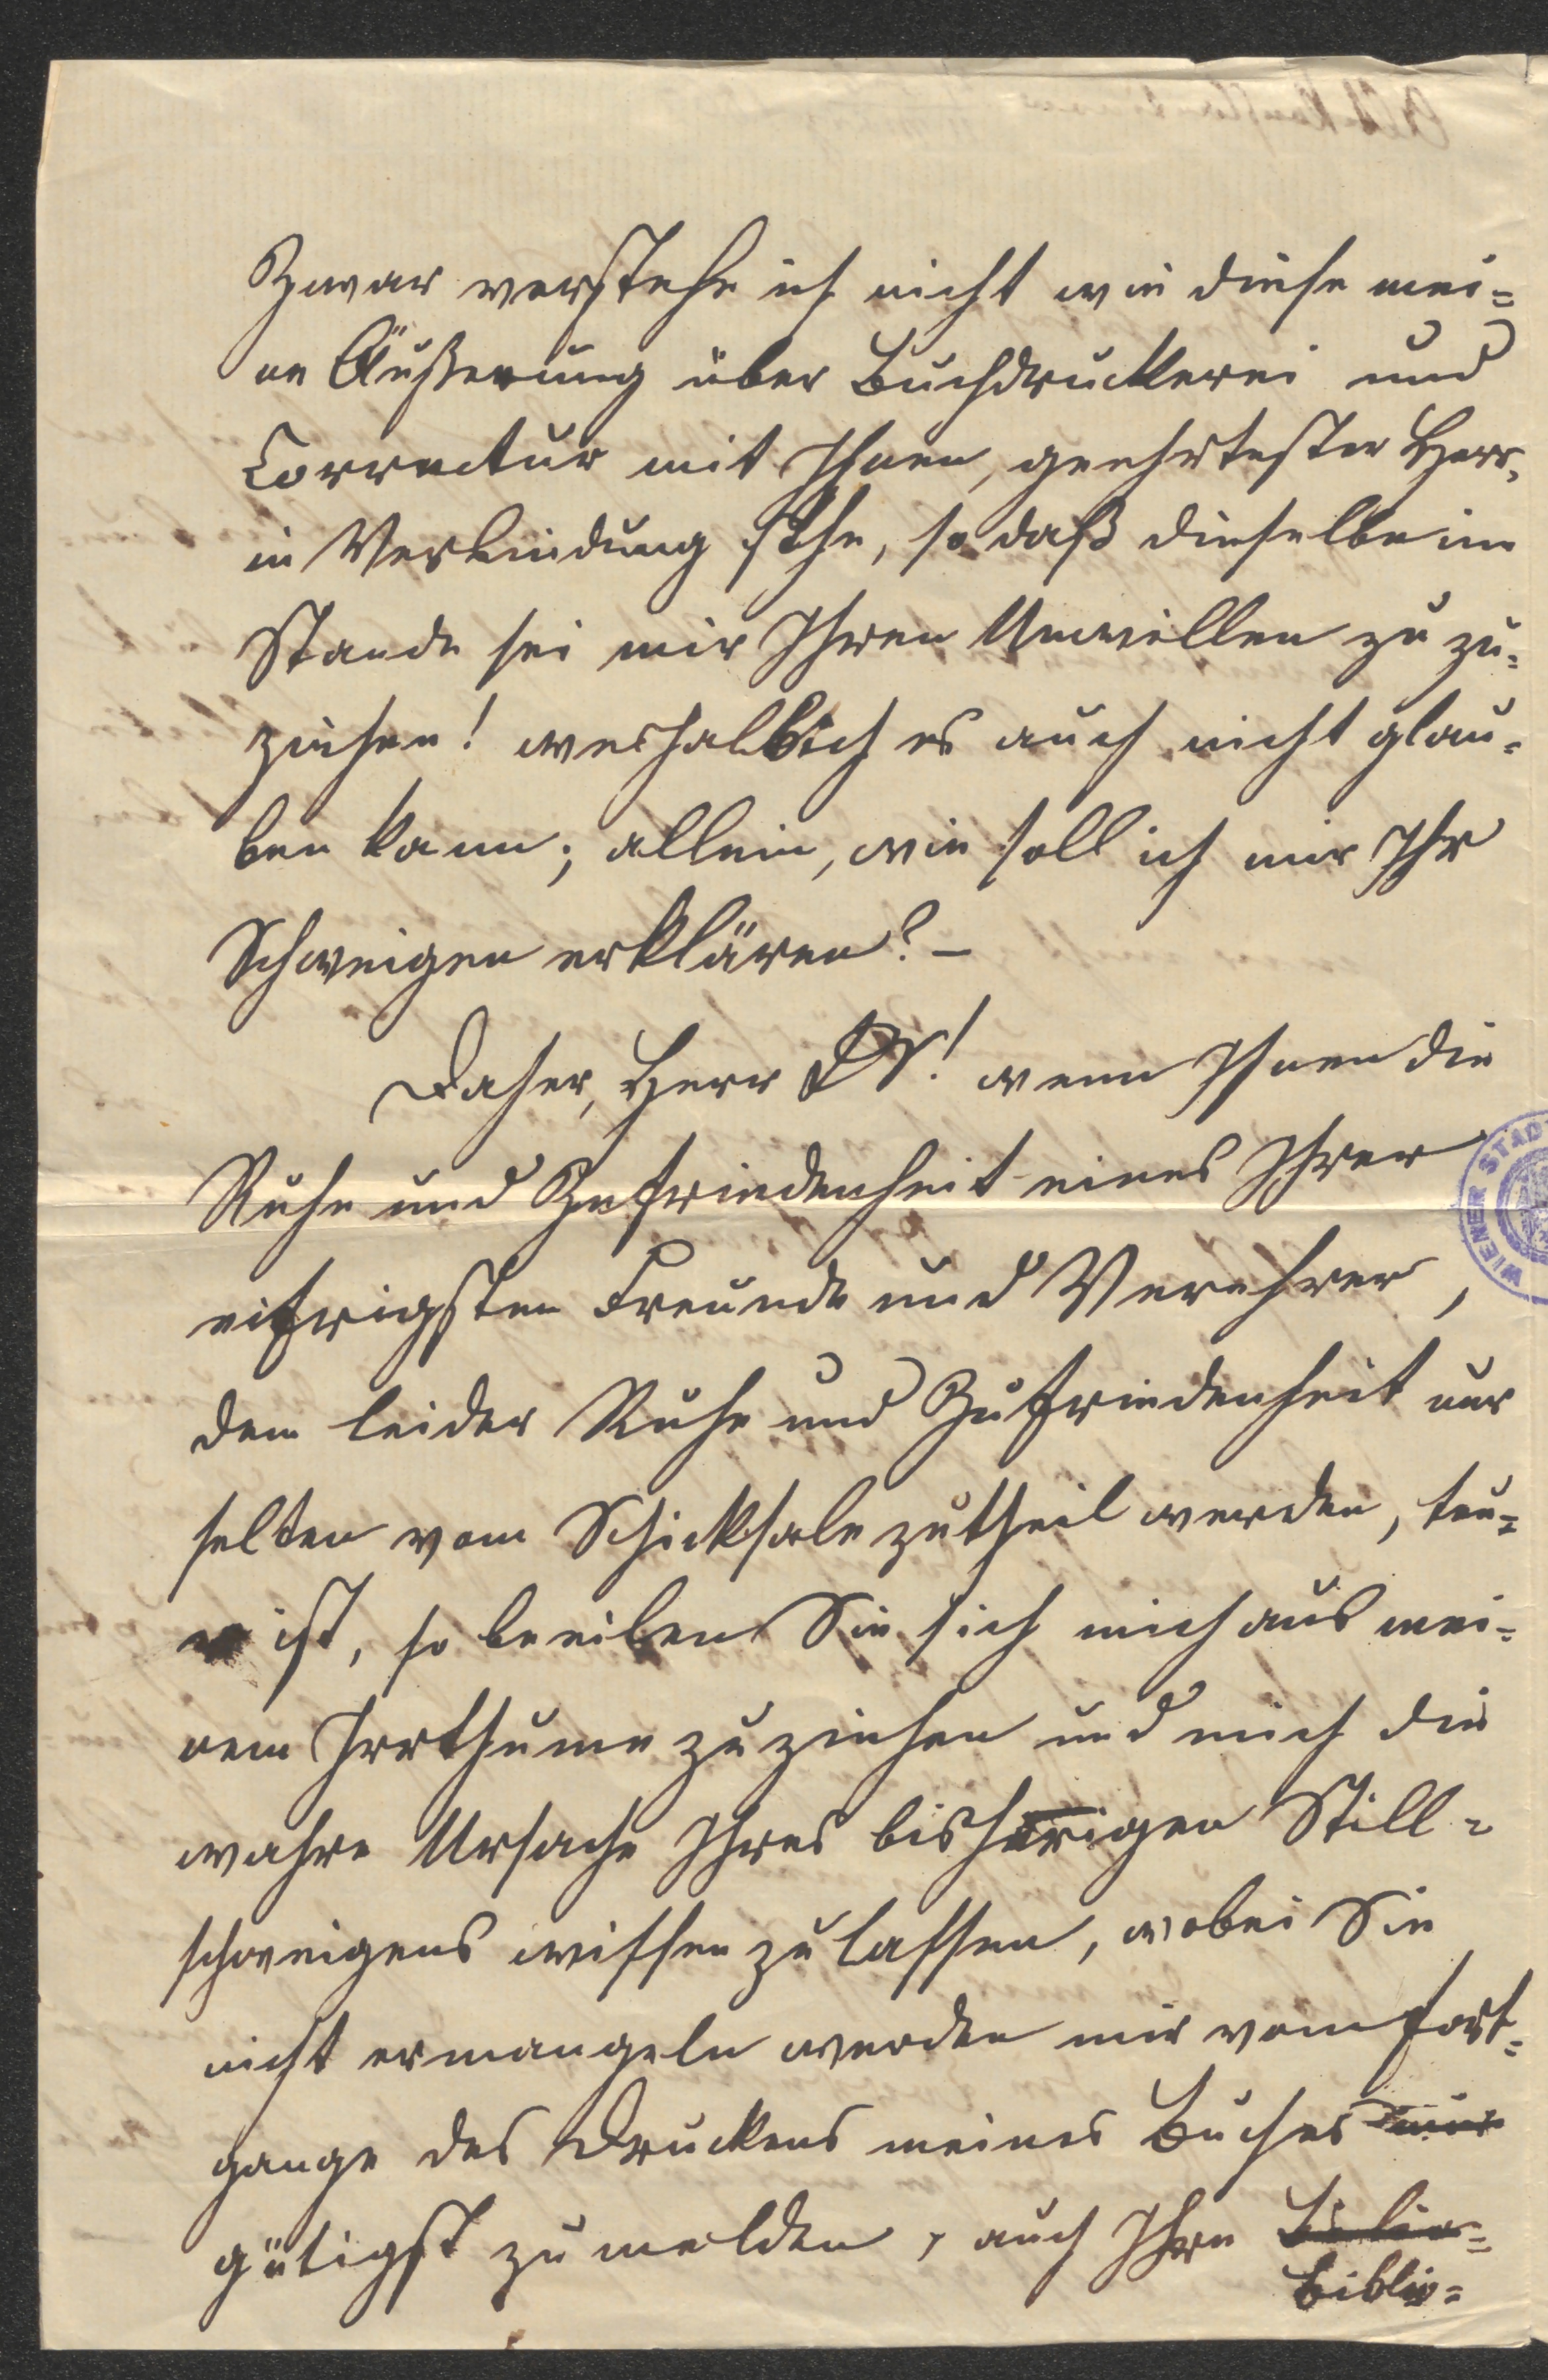 Zwar verstehe ich nicht wie diese mei=
ne Äußerung über Buchdruckerei und
Correctur mit Ihnen, geehrtester Herr,
in Verbindung stehe, so daß dieselbe im
Stande sei mir Ihren Unwillen zu zu=
ziehen! weshalb ich es auch nicht glau=
ben kann; allein, wie soll ich mir Ihr
Schweigen erklären? –
Daher, Herr Dr! wenn Ihnen die
Ruhe und Zufriedenheit eines Ihrer
eifrigsten Freunde und Verehrer,
dem leider Ruhe und Zufriedenheit nur
selten vom Schicksale zutheil werden, teu=
er ist, so beeilen Sie sich mich aus mei=
nem Irrthume zu ziehen und mich die
wahre Ursache Ihres bisherigen Still=
schweigens wissen zu lassen, wobei Sie
nicht ermangeln werden mir vom Fort=
gange des Druckens meines Buches mir
gütigst zu melden, auch Ihre
Biblio=
WIENER STAD